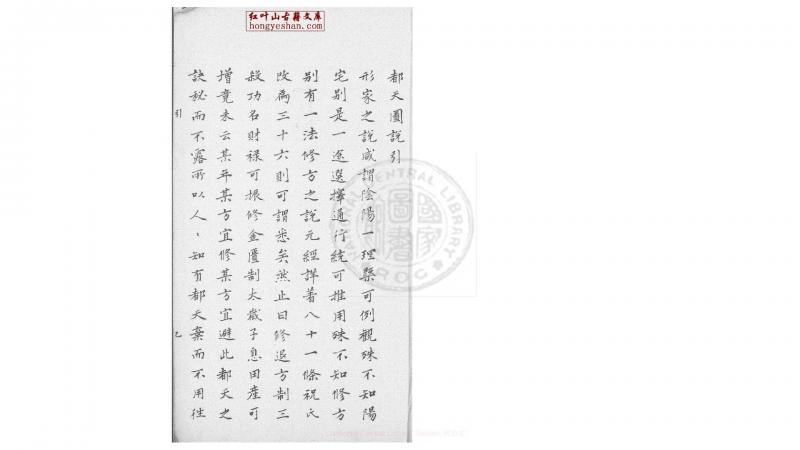 红叶山古籍文库
hongyeshan.com
都天圖説引
形家之説咸謂陰陽一理槩可例觀殊不知陽
宅别是一途選擇通行統可推用殊不知修方
别有一法修方之説元經詳著八十一條祝氏
改為三十六則可謂悉矣然止曰修退方制三
殺功名財禄可振修金匱制太歲子息田産可
增竟未云某年某方宜修某方宜避此都天之
訣秘而不露所以人〻知有都天棄而不用徃
引
乙
CENTRAL LIBRARY
國家
圖書
R.O.C